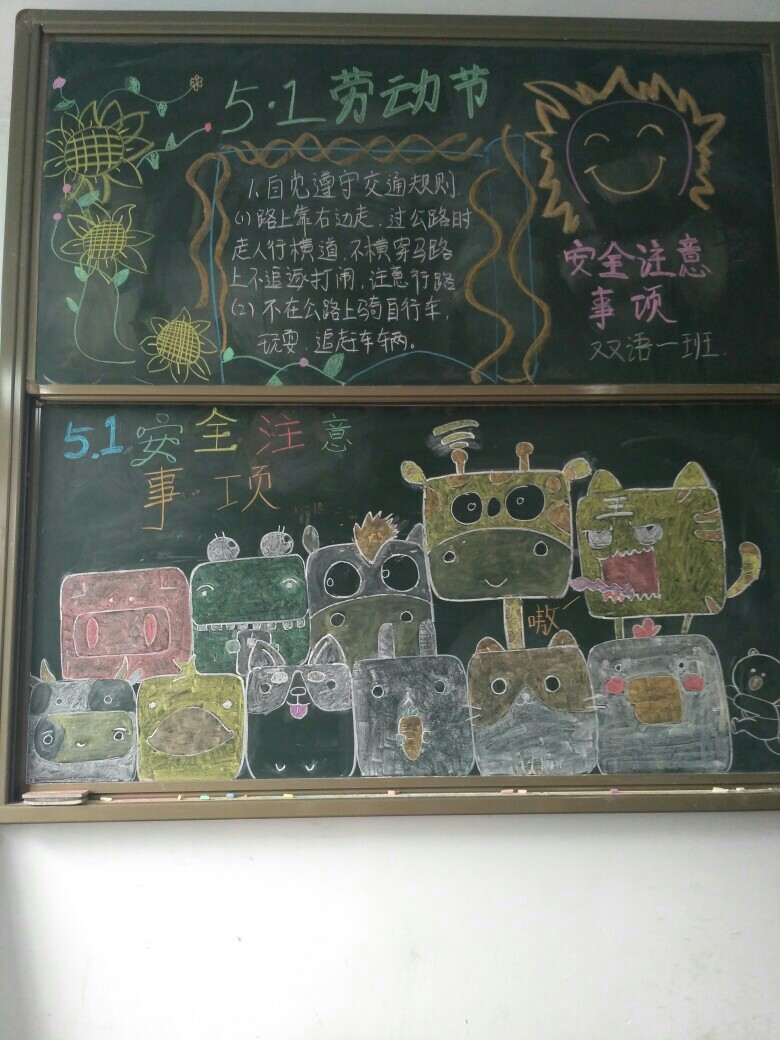 5.1劳动节
1.自觉遵守交通规则
(1)路上靠右边走,过公路时
走人行横道,不横穿马路
上不追逐打闹,注意行路
(2)不在公路上骑自行车,
玩耍,追赶车辆。
安全注意
事项
双语一班.
5.1安全注意
事项
王
嗷